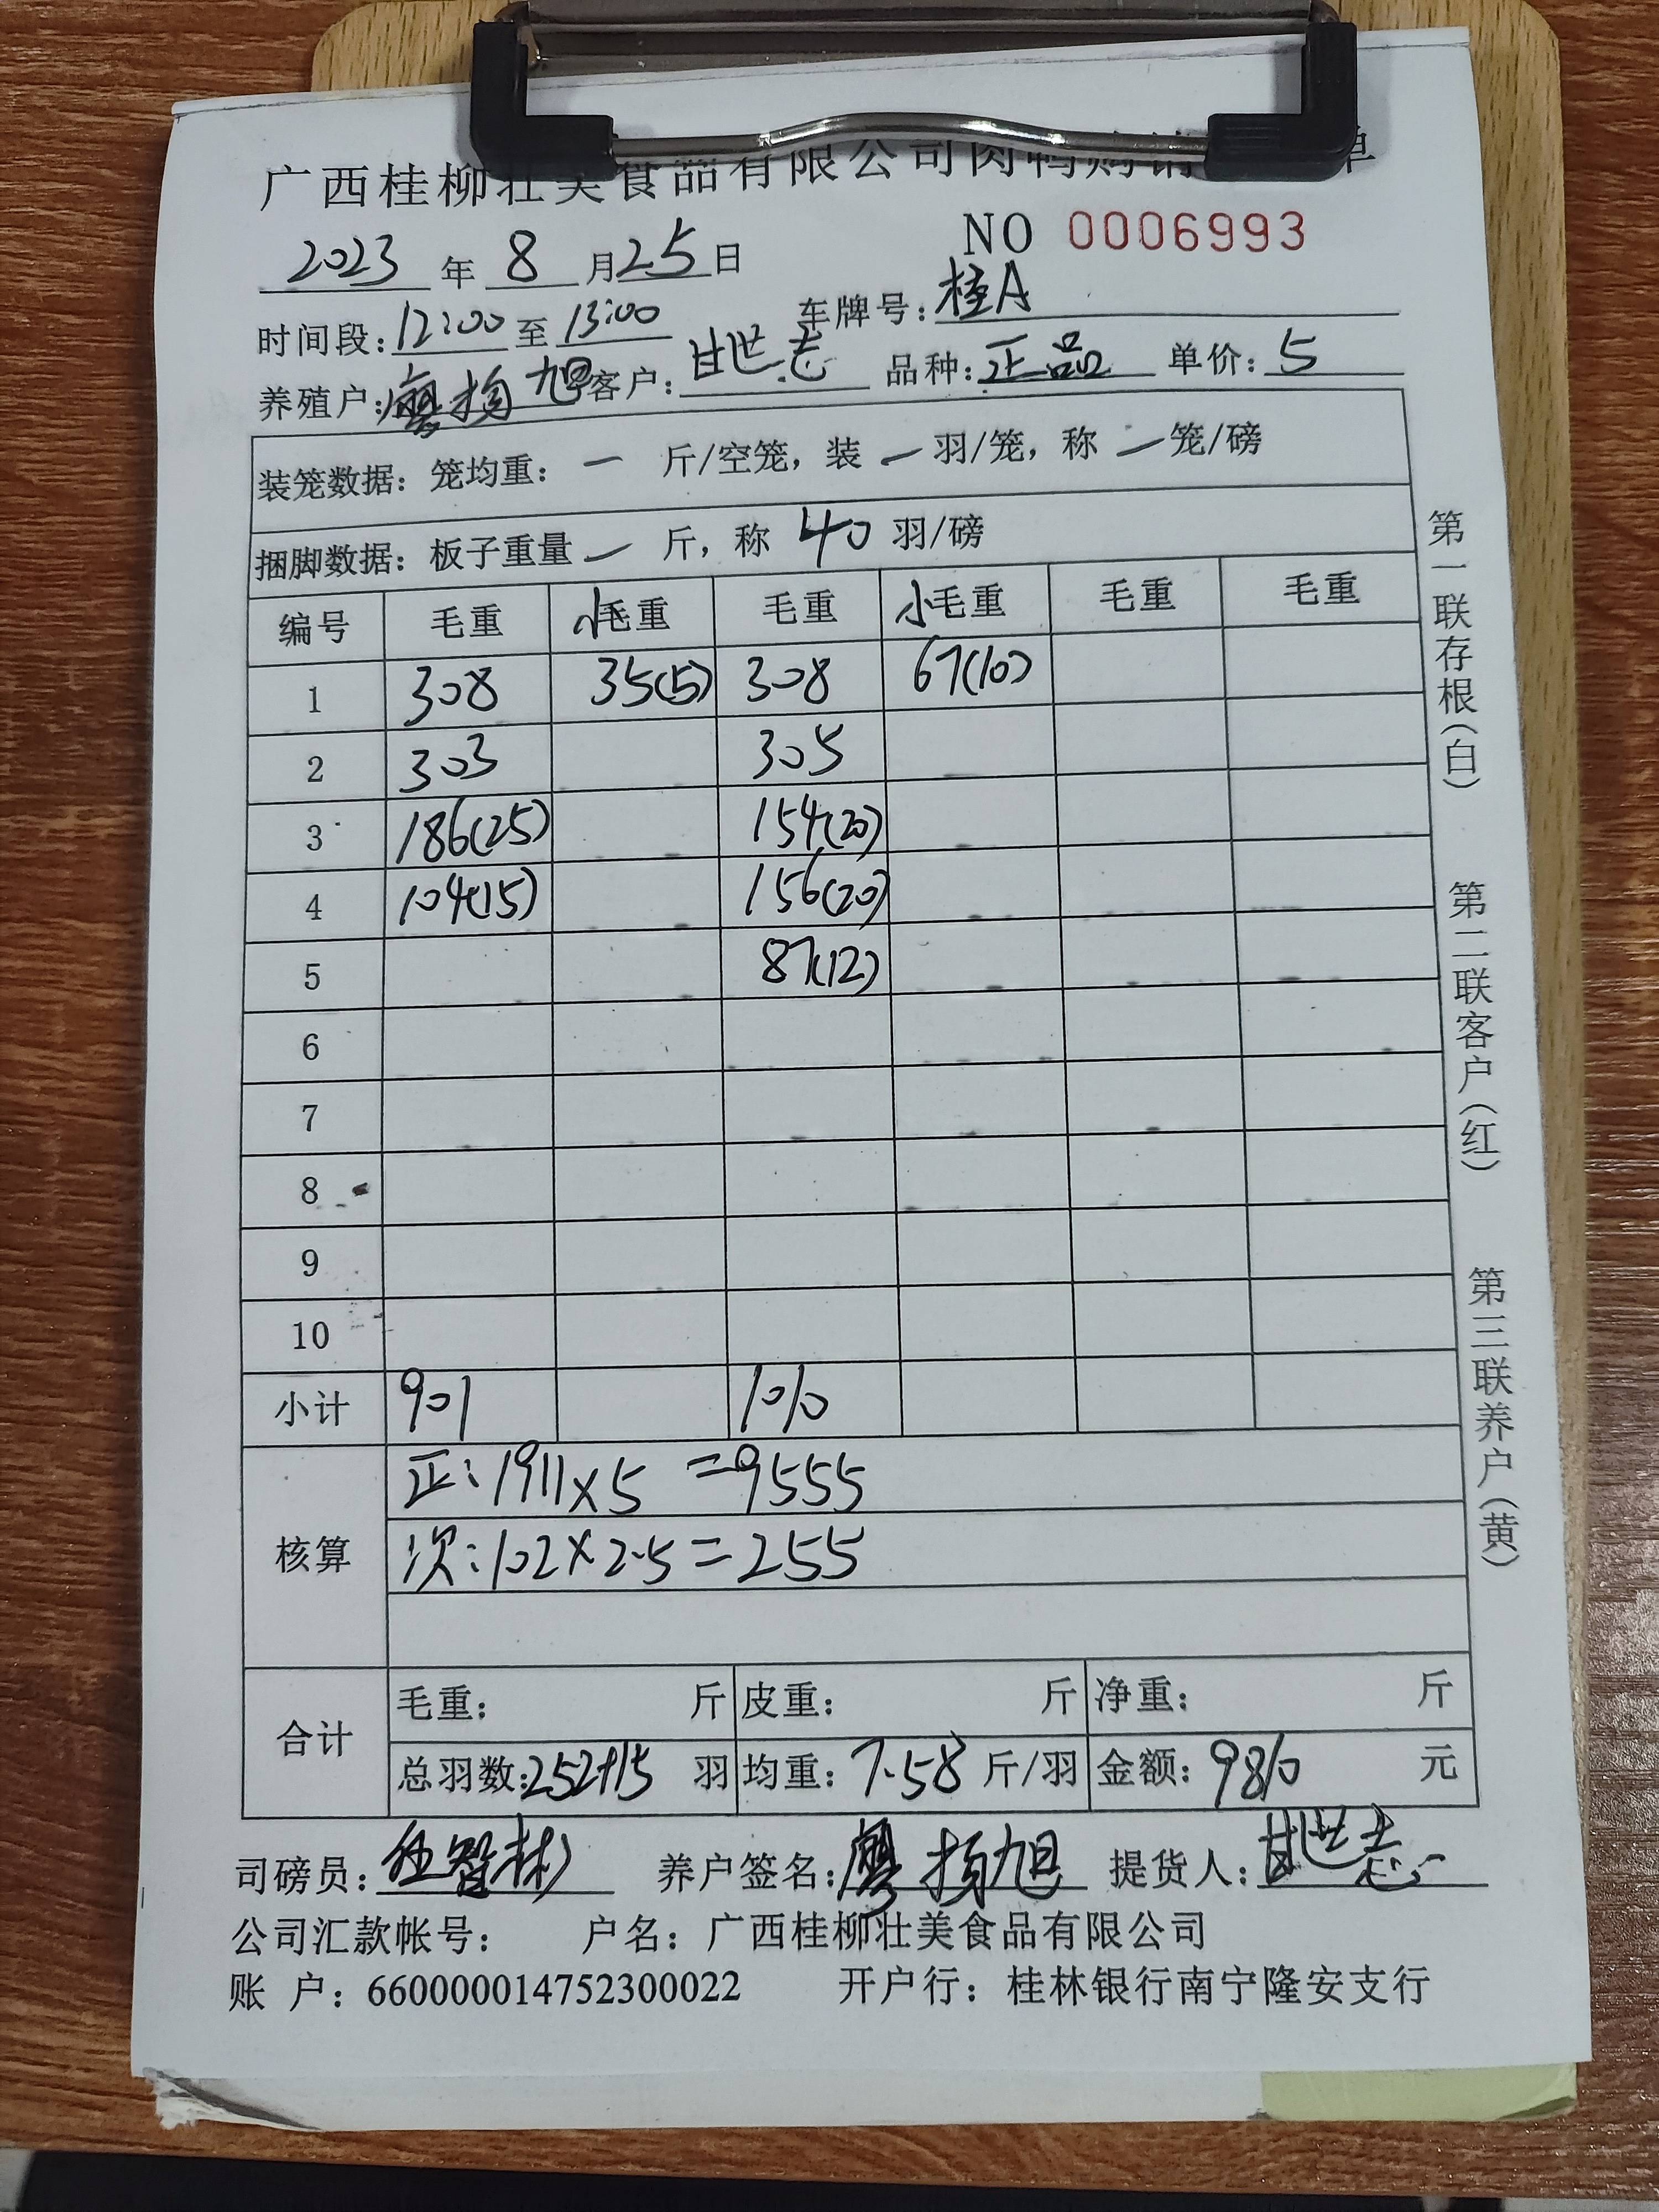 广西桂柳壮美食品有限公司肉鸭购销 单
NO 0006993
2023 年 8 月 25 日
时间段: 12:00 至 13:00 车牌号: 桂A
养殖户: 廖扬旭 客户: 甘世志 品种: 正品 单价: 5
装笼数据: 笼均重: 一 斤/空笼, 装 一 羽/笼, 称 一 笼/磅
捆脚数据: 板子重量 一 斤, 称 40 羽/磅
编号 毛重 小毛重 毛重 小毛重 毛重 毛重
1 308 35(5) 308 67(10)
2 303 305
3 186(25) 154(20)
4 104(15) 156(20)
5 87(12)
6
7
8
9
10
小计 901 1010
核算 正: 1911×5 =9555
次: 102×2.5=255
合计 毛重: 斤 皮重: 斤 净重: 斤
总羽数: 252+15 羽 均重: 7.58 斤/羽 金额: 9810 元
司磅员: 养户签名: 廖扬旭 提货人: 甘世志
公司汇款帐号: 户名: 广西桂柳壮美食品有限公司
账 户: 660000014752300022 开户行: 桂林银行南宁隆安支行
第一联存根(白)
第二联客户(红)
第三联养户(黄)